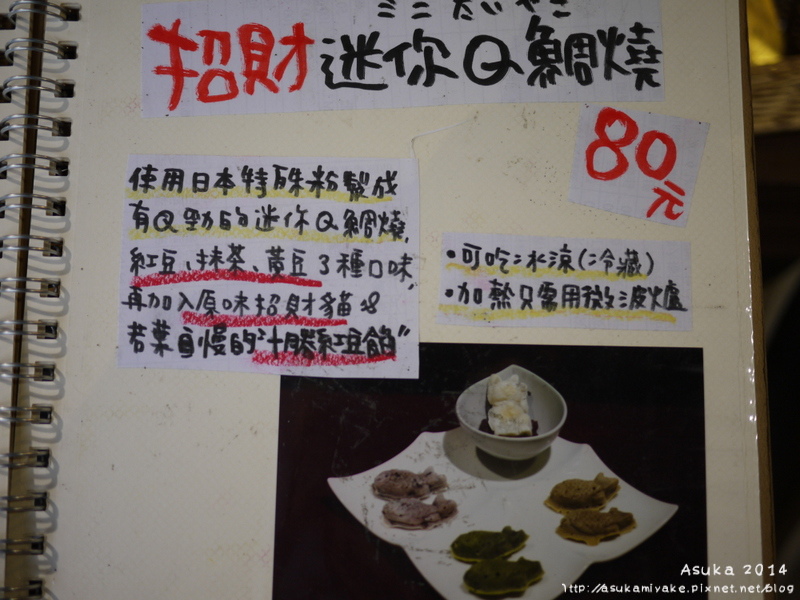 ミニたいやき
招財迷你Q鯛燒
80元
使用日本特殊粉製成
有Q勁的迷你Q鯛燒,
紅豆、抹茶、黃豆3種口味,
再加入原味招財貓&
若葉自慢的"十勝紅豆餡"
•可吃冰涼(冷藏)
•加熱只需用微波爐
Asuka 2014
http://asukamiyake.pixnet.net/blog